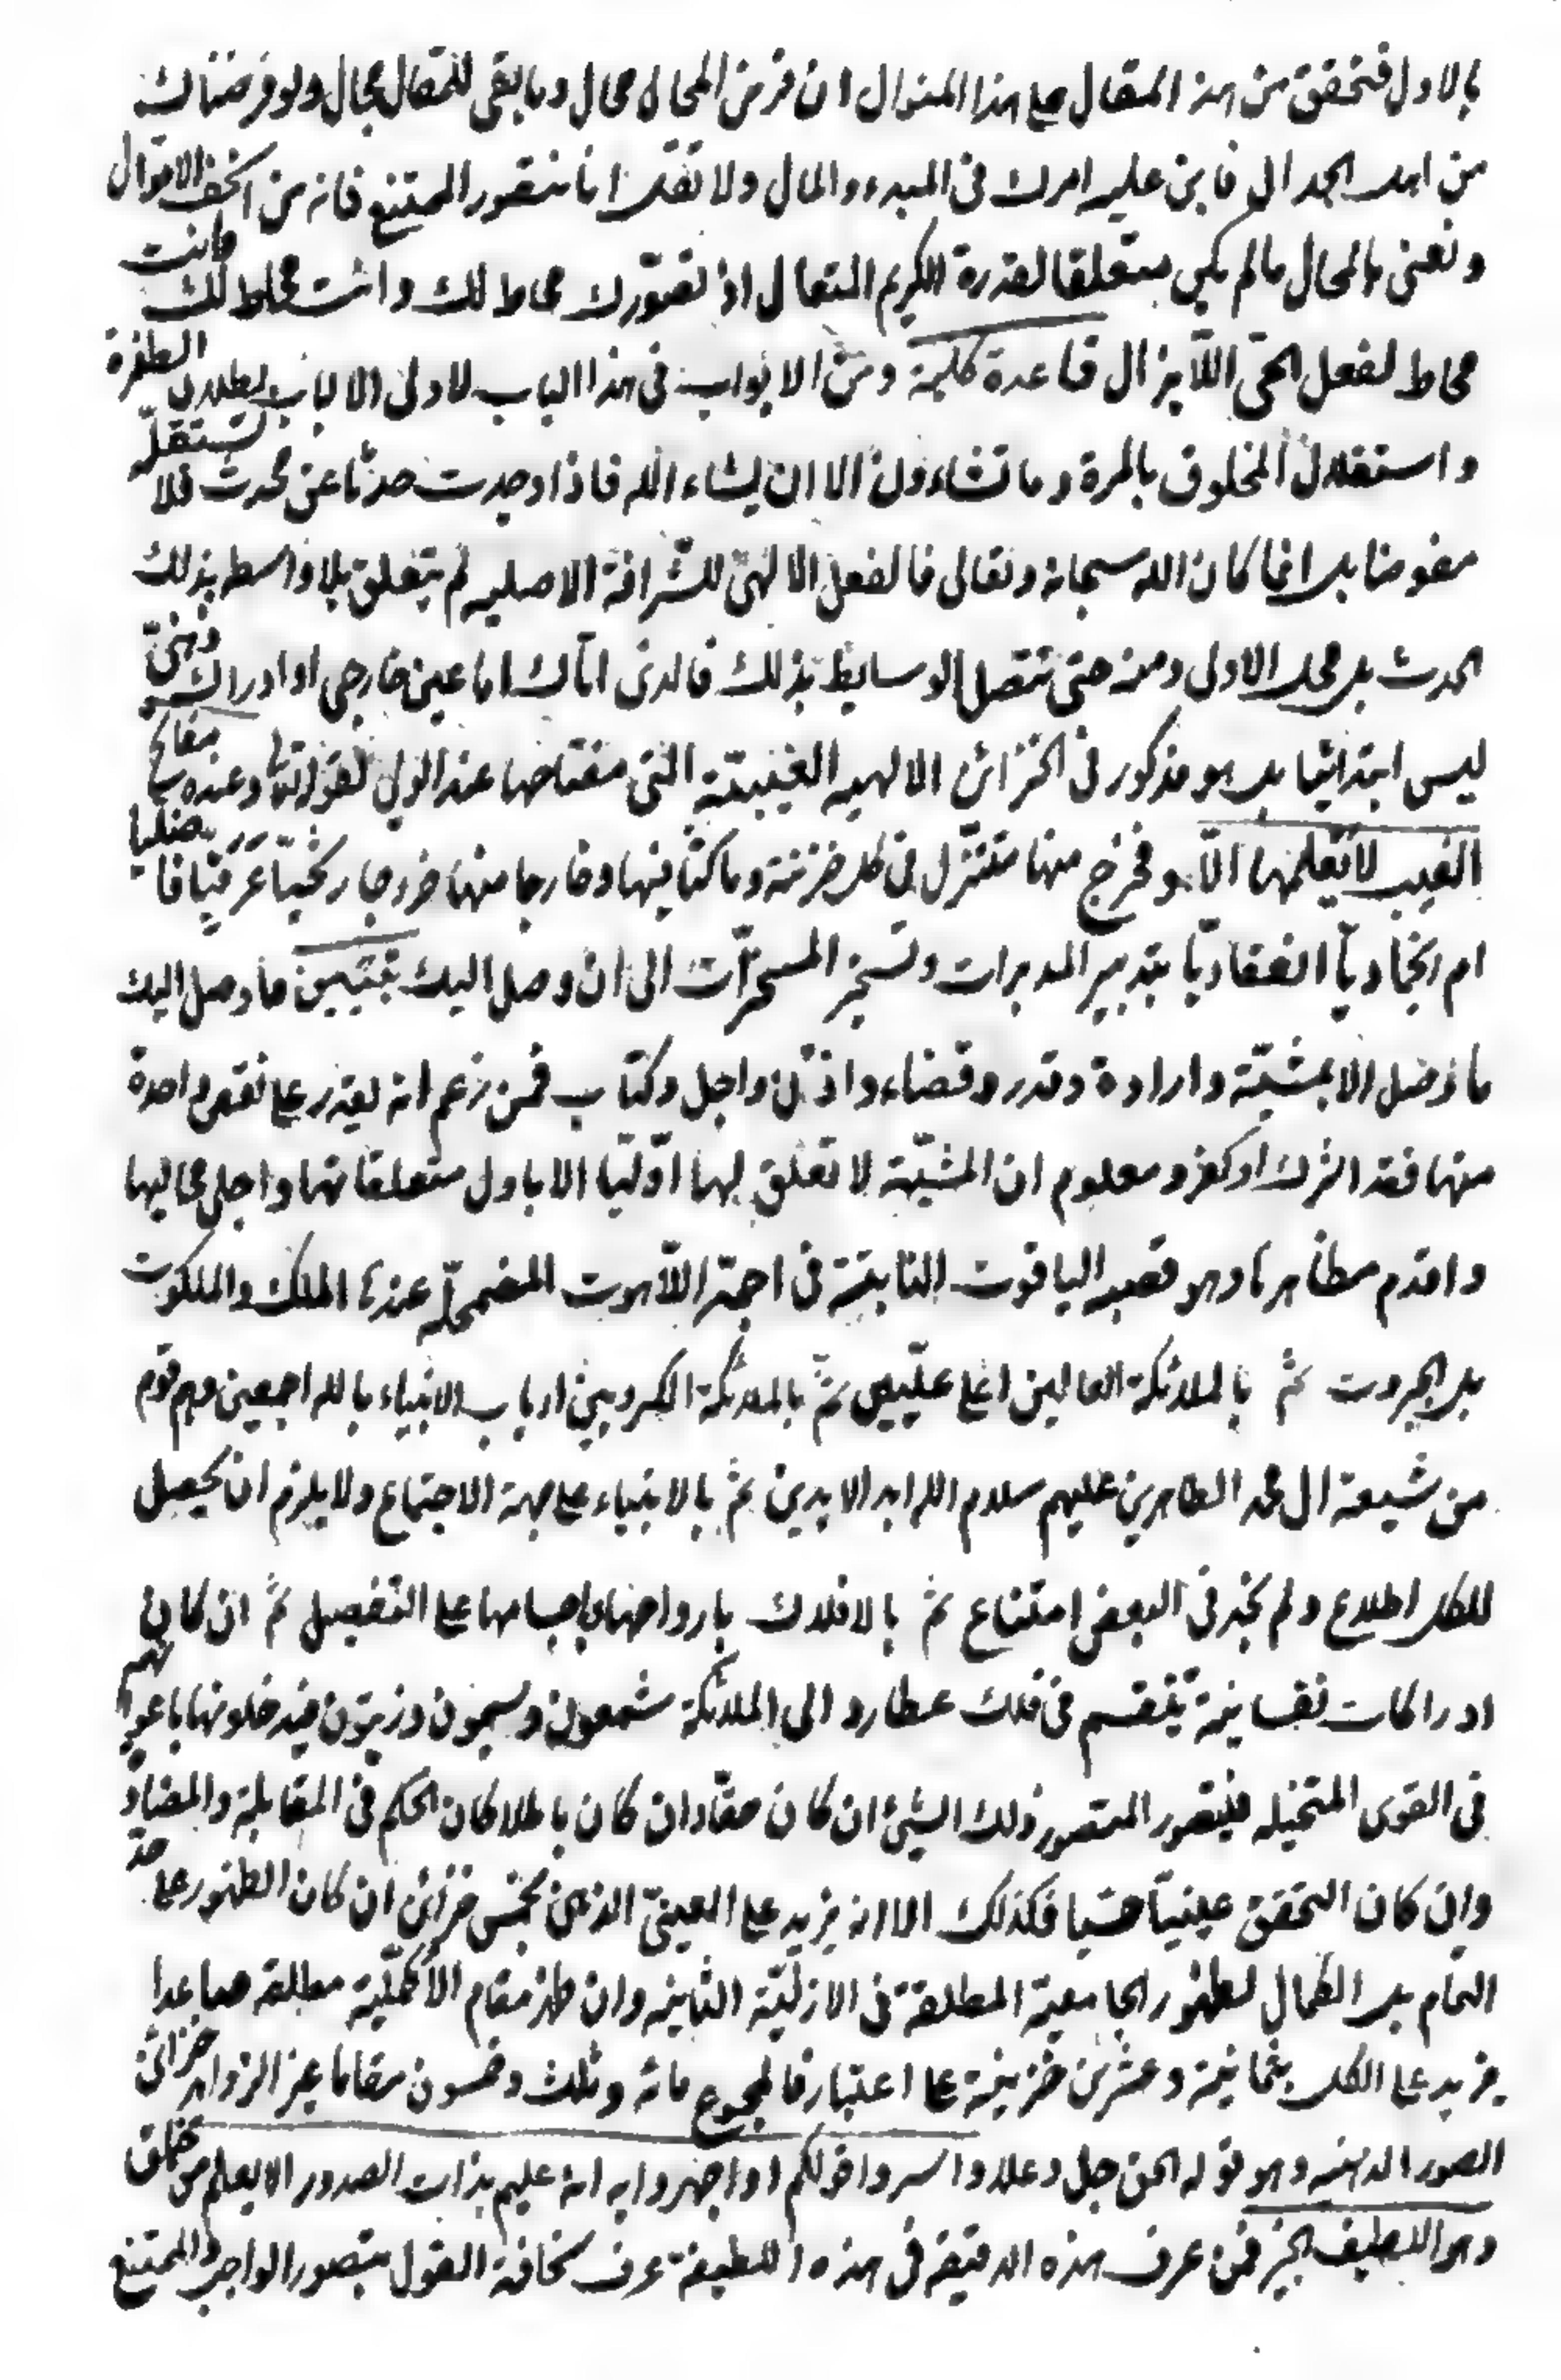 بالاول فتحقق من هذا المقال على هذا المنوال ان فرض المحال محال وما بقى للمقال مجال ولو فرضناك
من اهل الجدال فابن عليه امرك فى المبدء والمال ولا تقل انا نتصور الممتنع فانه من اسخف الاقوال
ونعنى بالمحال ما لم يكن متعلقا لقدرة الكريم المتعال اذ تصورك محاط لك وانت محاط لك وانت
محاط لفعل الحى اللايزال قاعدة كلية ومن الابواب فى هذا الباب لاولى الالباب بطلان الطفرة
واستقلال المخلوق بالمرة وما تشاءون الا ان يشاء الله فاذا وجدت حدثا عن محدث فلا تستقله
مفوضا بل انما كان الله سبحانه وتعالى فالفعل الالهى للشرافة الاصليه لم يتعلق بلا واسطه بذلك
الحدث بل محل الاولى ومنه حتى تتصل الوسايط بذلك فالذى اتاك اما عين خارجى او ادراك ذهنى
ليس ابتدائيا بل هو مذكور فى الخزائن الالهيه الغيبية التى مفتاحها عند الولى لقوله تعالى وعنده مفاتح
الغيب لا يعلمها الا هو فخرج منها متنزل فى كل خزينة وما كنا فيها وخارجا منها خروجا رشحيا عرقيا فاضليا
ام ايجاديا انعقاديا بتدبير المدبرات وتسخير المسخرات الى ان وصل اليك فتبين ما وصل اليك
ما وصل الا بمشية وارادة وقدر وقضاء واذن واجل وكتاب فمن زعم انه يقدر على نقص واحدة
منها فقد اشرك او كفر ومعلوم ان المشية لا تعلق لها اوليا الا باول متعلقاتها واجلى مجاليها
واقدم مظاهرها وهو قصبه الياقوت النابتة فى اجمة اللاهوت المضمحلة عندها الملك والملكوت
بل الجبروت ثم بالملائكة العالين اعلى عليين ثم بالملائكة الكروبين ارباب الانبياء بالله اجمعين وهم قوم
من شيعة ال محمد الطاهرين عليهم سلام الله ابد الابدين ثم بالانبياء على جهة الاجتماع ولا يلزم ان يحصل
للكل اطلاع ولم يجز فى البعض امتناع ثم بالافلاك بارواحها باجسامها على التفصيل ثم ان كان
ادراكات نفسانية تنقسم فى فلك عطارد الى الملائكة شمعون وسيمون وزيتون فيدخلونها باعوانهم
فى القوى المتخيله فيتصور المتصور ذلك الشئ ان كان حقا وان كان باطلا كان الحكم فى المقابلة والمضادة
وان كان التحقق عينيا حسيا فكذلك الا انه يزيد على العينى الذهنى بخمس خزائن ان كان الظهور على حد
التمام بل الكمال لظهور الجامعية المطلقة فى الازلية الثانيه وان ظهر مقام الاكملية مطلقه صاعدا
يزيد على الكل بثمانية وعشرين خزينة على اعتبار فالمجموع مائه وثلث وخمسون مقاما غير الزوايد خزائن
الصور الذهنيه وهو قوله الحق جل وعلا واسروا قولكم او اجهروا به انه عليم بذات الصدور الا يعلم من خلق
وهو اللطيف الخبير فمن عرف هذه الدقيقة فى هذه اللطيفة عرف سخافة القول بتصور الواجب والممتنع